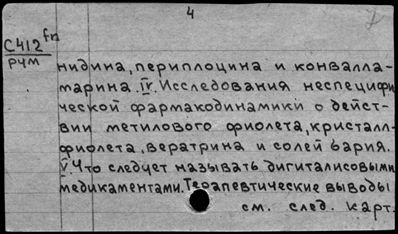 4
С412 fn
рум
нидина, периплоцина и конвалла-
марина. IV. Исследования неспецифи
ческой фармакодинамики о дейст-
вии метилового фиолета, кристалл-
фиолета, вератрина и солей бария.
V. Что следует называть дигиталисовыми
медикаментами. Терапевтические выводы
см. след. карт.